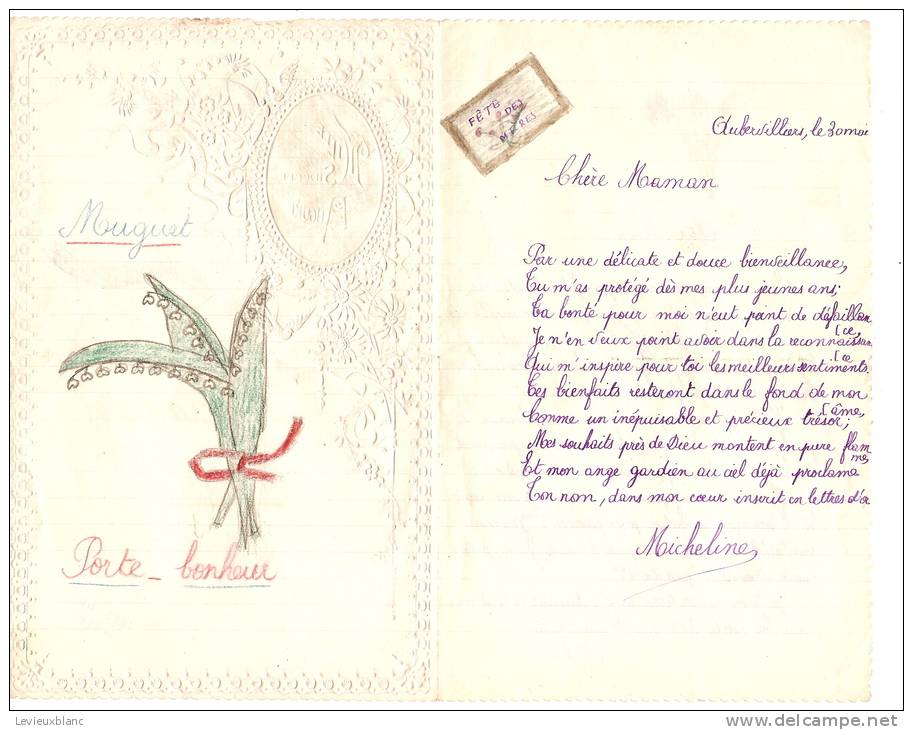 Muguet
Porte-bonheur
FÊTE
DES
MÈRES
Aubervilliers, le 30 mai
Chère Maman
Par une délicate et douce bienveillance,
Tu m'as protégé dès mes plus jeunes ans;
Ta bonté pour moi n'eut point de défaillan
(ce,
Je n'en veux point avoir dans la reconnaissan
(ce
Qui m'inspire pour toi les meilleurs sentiments.
Tes bienfaits resteront dans le fond de mon
(âme,
Comme un inépuisable et précieux trésor;
Mes souhaits près de Dieu montent en pure flam
me,
Et mon ange gardien au ciel déjà proclame
Ton nom, dans mon cœur inscrit en lettres d'or
Micheline
Levieuxblanc
www.delcampe.net